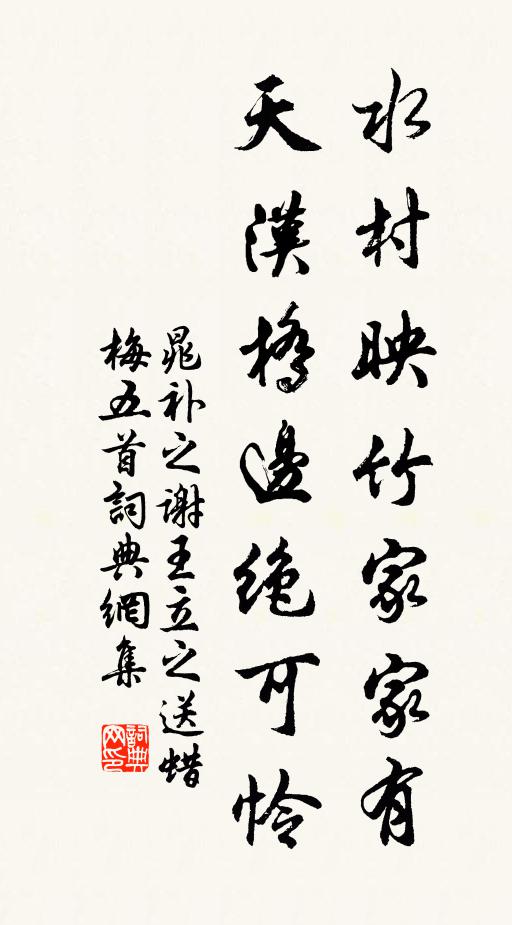 水村映竹家家有
天漢橋邊绝可怜
晁补之谢王立之送蜡
梅五首詞典網集
詞典
网印